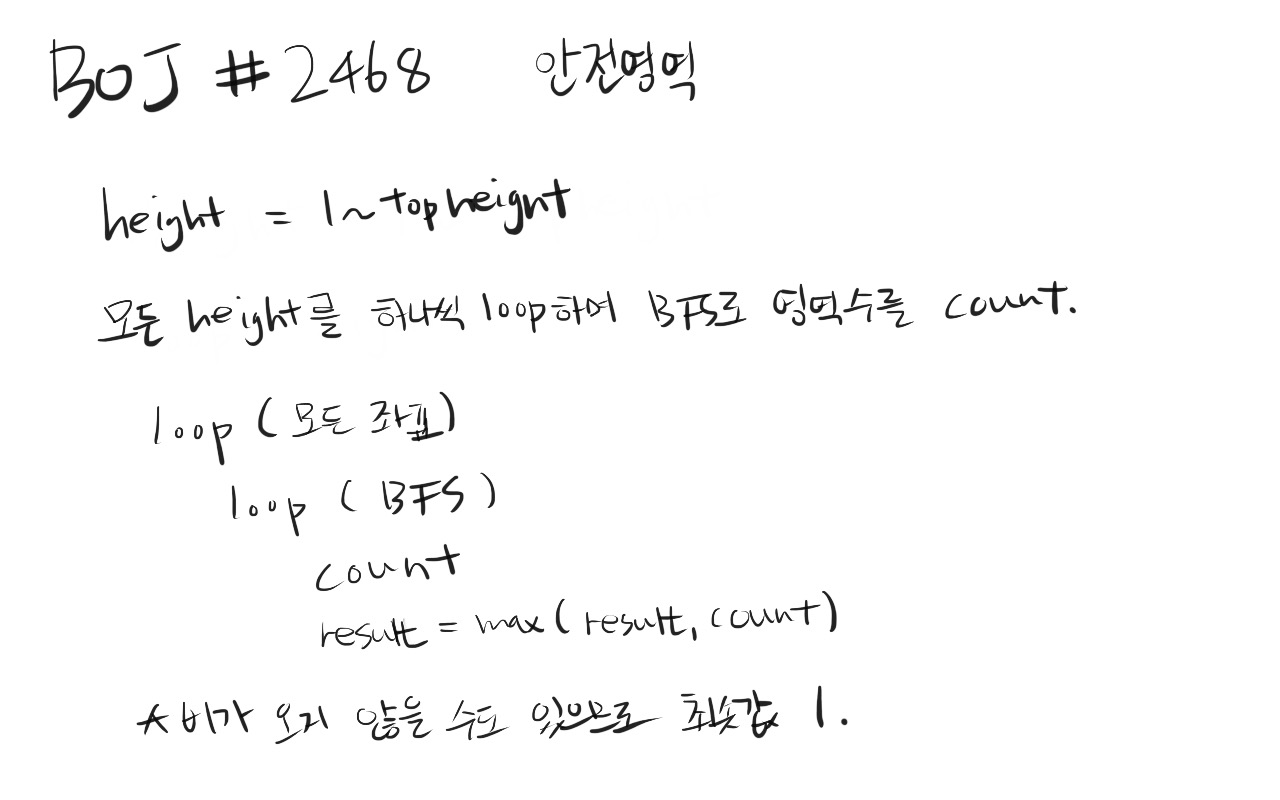 BOJ #2468 안전영역
height = 1~topheight
모든 height를 하나씩 loop하며 BFS로 영역수를 count.
loop (모든 좌표)
loop (BFS)
count
result = max(result, count)
*비가 오지 않을 수도 있으므로 최솟값 1.